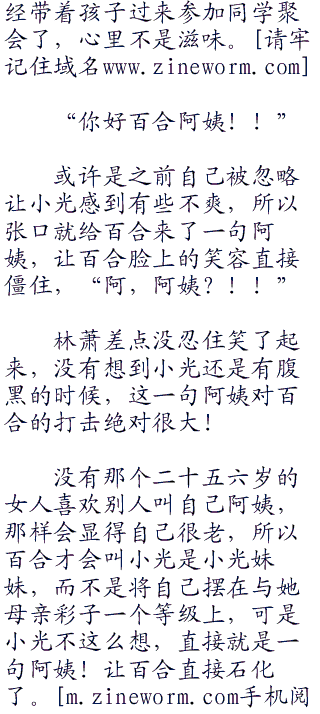 经带着孩子过来参加同学聚
会了，心里不是滋味。[请牢
记住域名www.zineworm.com]
“你好百合阿姨！！”
或许是之前自己被忽略
让小光感到有些不爽，所以
张口就给百合来了一句阿
姨，让百合脸上的笑容直接
僵住，“阿，阿姨？！！”
林萧差点没忍住笑了起
来，没有想到小光还是有腹
黑的时候，这一句阿姨对百
合的打击绝对很大！
没有那个二十五六岁的
女人喜欢别人叫自己阿姨，
那样会显得自己很老，所以
百合才会叫小光是小光妹
妹，而不是将自己摆在与她
母亲彩子一个等级上，可是
小光不这么想，直接就是一
句阿姨！让百合直接石化
了。[m.zineworm.com手机阅